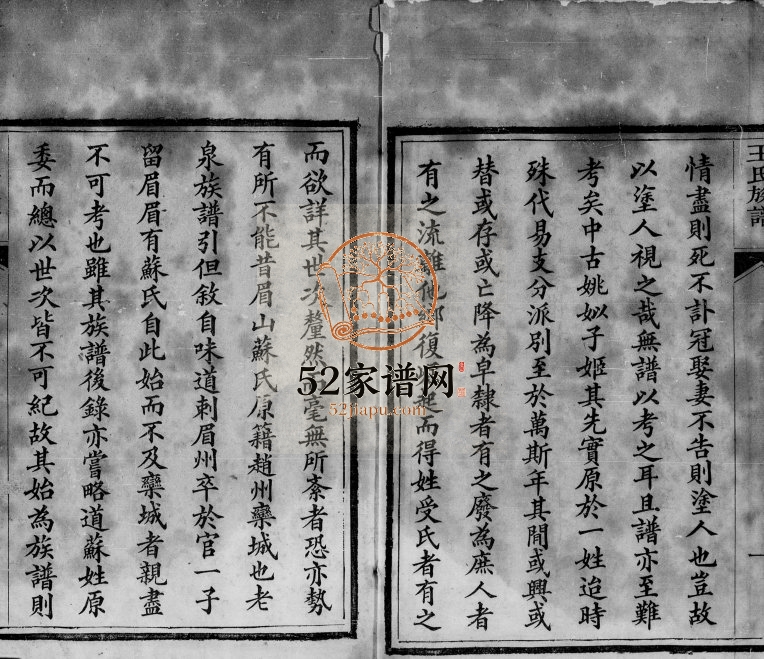 王氏族譜
一
情盡則死不訃冠娶妻不告則塗人也豈故
以塗人視之哉無譜以考之耳且譜亦至難
考矣中古姚姒子姬其先實原於一姓迨時
殊代易支分派別至於萬斯年其間或興或
替或存或亡降為皁隸者有之廢為庶人者
有之流離他鄉復 起而得姓受氏者有之
而欲詳其世次釐然 毫無所紊者恐亦勢
有所不能昔眉山蘇氏原籍趙州欒城也老
泉族譜引但敘自味道刺眉州卒於官一子
留眉眉有蘇氏自此始而不及欒城者親盡
不可考也雖其族譜後錄亦嘗略道蘇姓原
委而總以世次皆不可紀故其始為族譜則
52家谱网
52jiapu.com